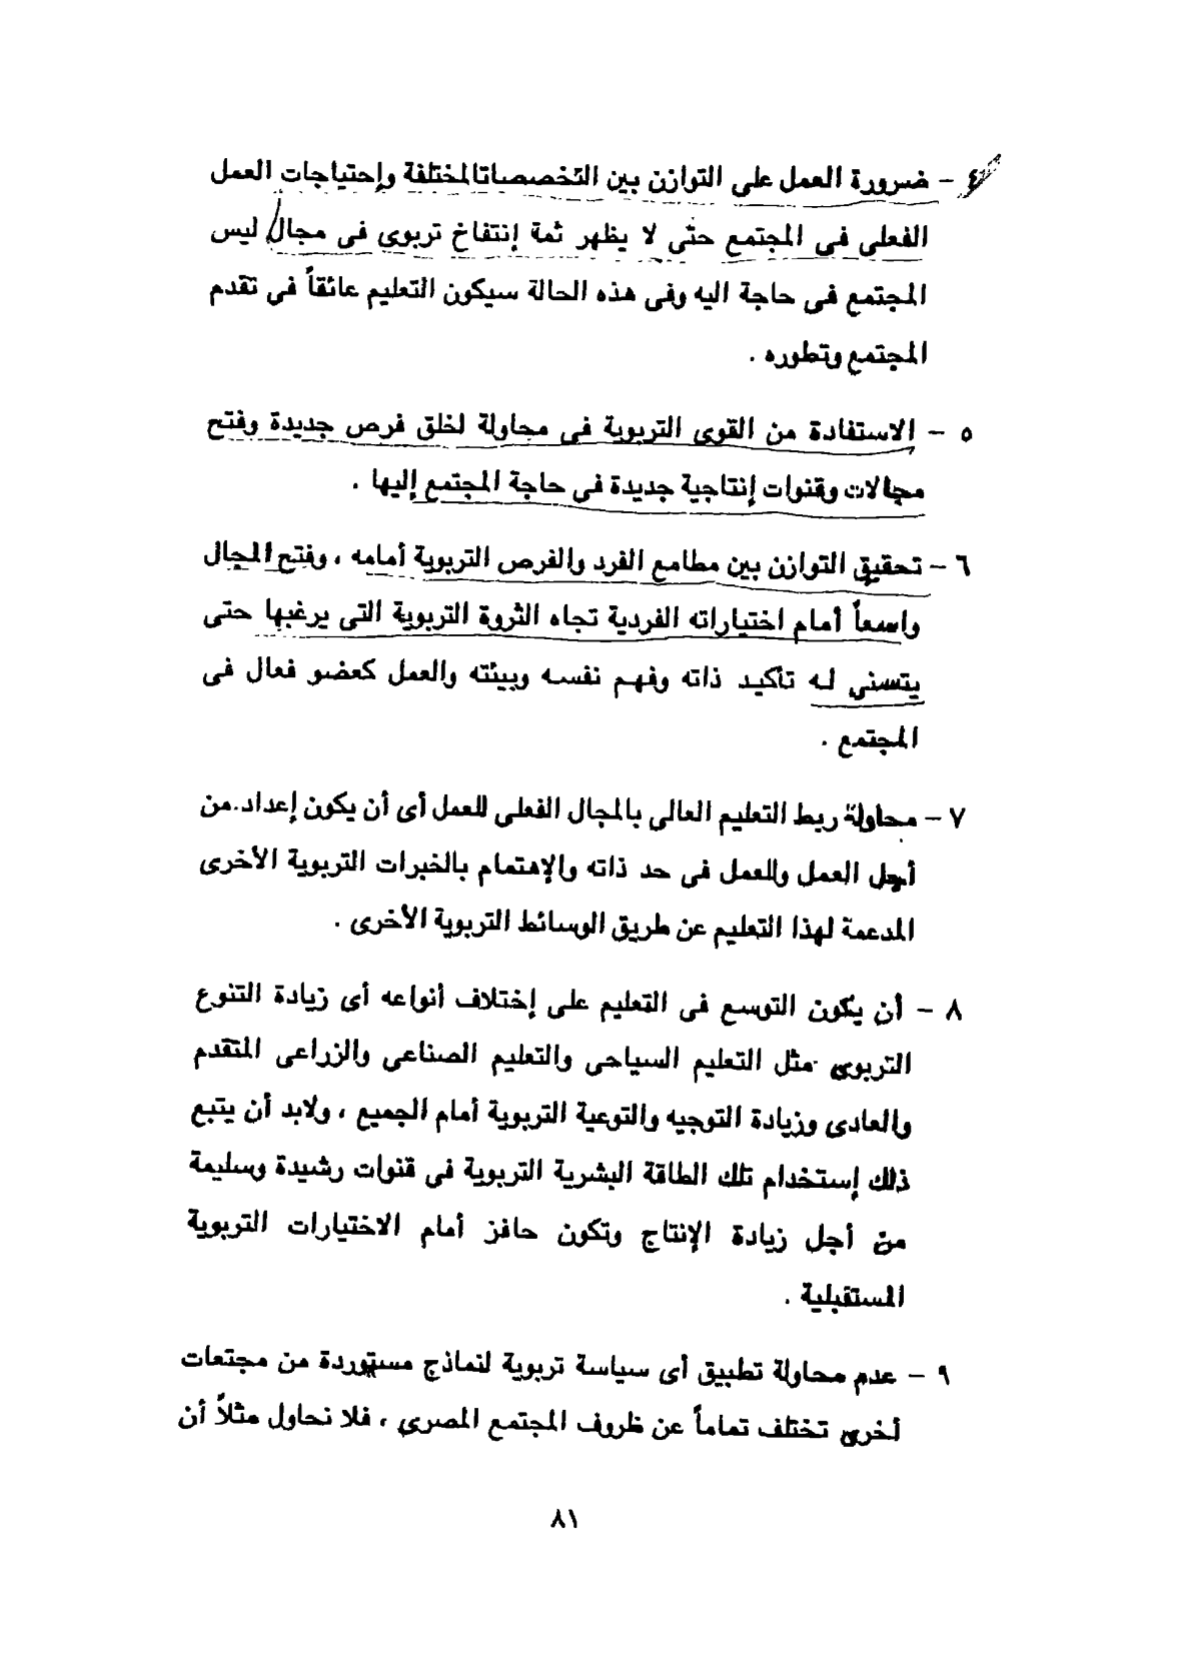 ٤ - ضرورة العمل على التوازن بين التخصصاتالمختلفة وإحتياجات العمل
الفعلى فى المجتمع حتى لا يظهر ثمة إنتفاخ تربوى فى مجال ليس
المجتمع فى حاجة اليه وفى هذه الحالة سيكون التعليم عائقاً فى تقدم
المجتمع وتطوره .
٥ - الاستفادة من القوى التربوية فى محاولة لخلق فرص جديدة وفتح
مجالات وقنوات إنتاجية جديدة فى حاجة المجتمع إليها .
٦ - تحقيق التوازن بين مطامع الفرد والفرص التربوية أمامه ، وفتح المجال
واسعاً أمام اختياراته الفردية تجاه الثروة التربوية التى يرغبها حتى
يتسنى له تأكيد ذاته وفهم نفسه وبيئته والعمل كعضو فعال فى
المجتمع .
٧ - محاولة ربط التعليم العالى بالمجال الفعلى للعمل أى أن يكون إعداد من
أجل العمل وللعمل فى حد ذاته والإهتمام بالخبرات التربوية الأخرى
المدعمة لهذا التعليم عن طريق الوسائط التربوية الأخرى .
٨ - أن يكون التوسع فى التعليم على إختلاف أنواعه أى زيادة التنوع
التربوى مثل التعليم السياحى والتعليم الصناعى والزراعى المتقدم
والعادى وزيادة التوجيه والتوعية التربوية أمام الجميع ، ولابد أن يتبع
ذلك إستخدام تلك الطاقة البشرية التربوية فى قنوات رشيدة وسليمة
من أجل زيادة الإنتاج وتكون حافز أمام الاختيارات التربوية
المستقبلية .
٩ - عدم محاولة تطبيق أى سياسة تربوية لنماذج مستوردة من مجتعات
أخرى تختلف تماماً عن ظروف المجتمع المصرى ، فلا نحاول مثلاً أن
٨١